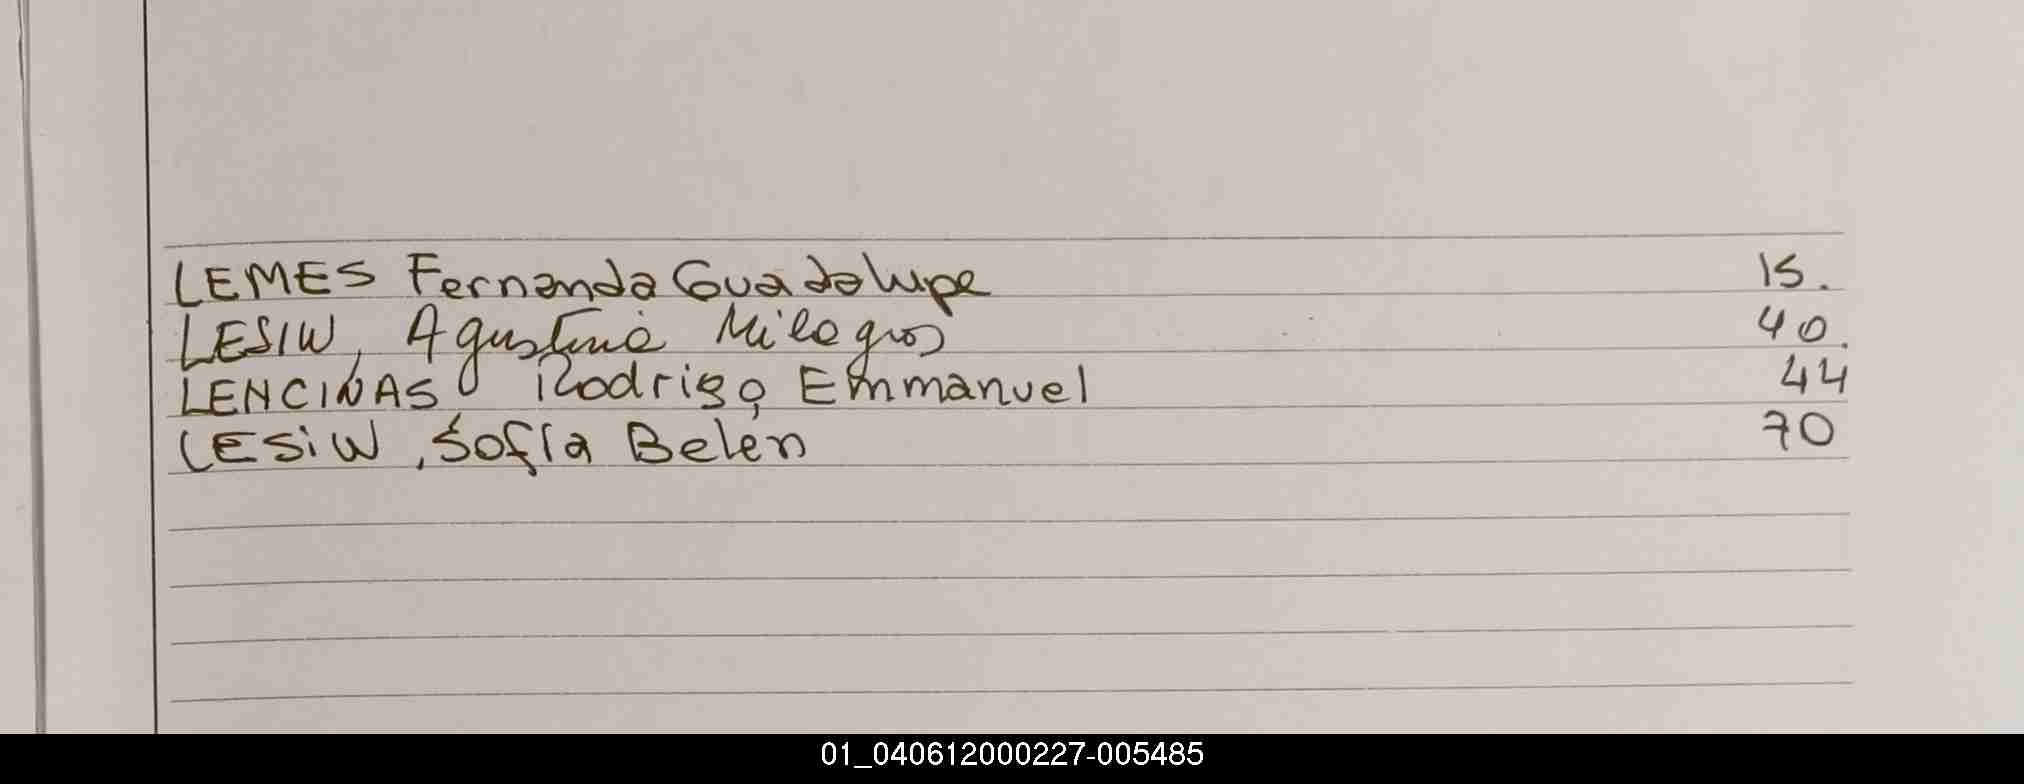 LEMES Fernanda Guadalupe 15.
LESIW, Agustina Milagros 40.
LENCINAS Rodrigo, Emmanuel 44
LESiW, Sofía Belén 70
01_040612000227-005485